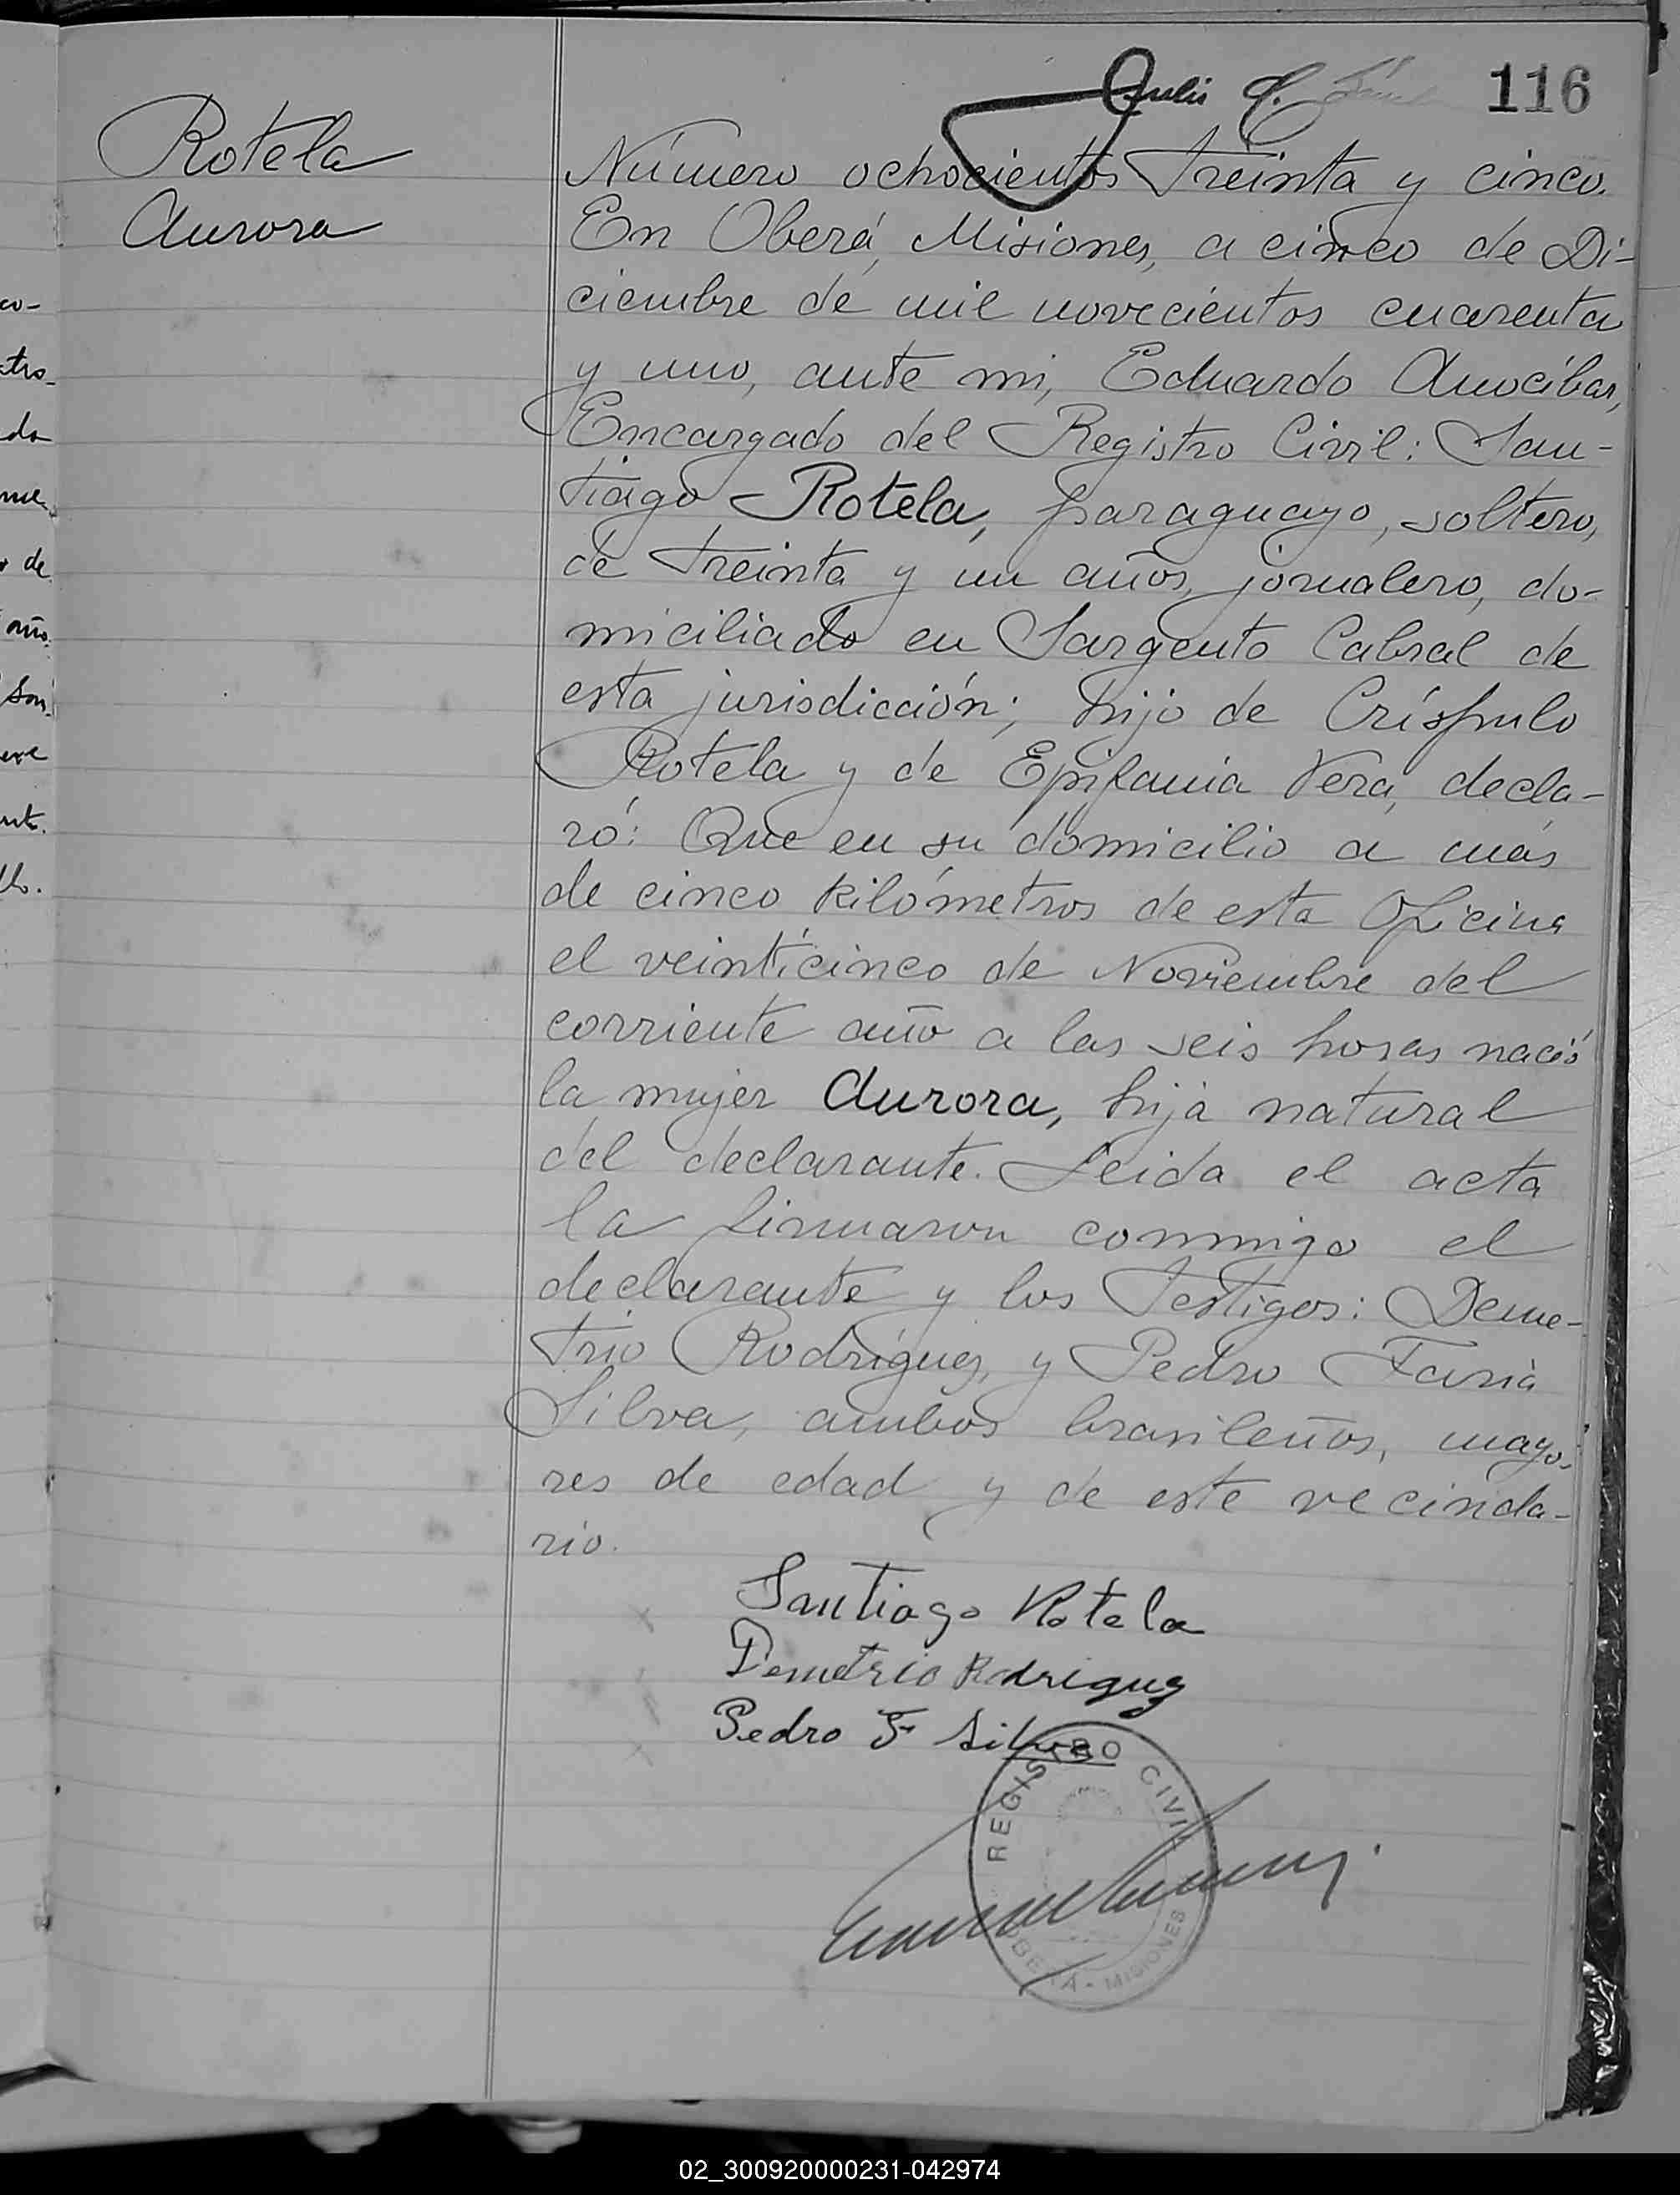 116
Rotela
Aurora
Número ochocientos treinta y cinco.
En Oberá, Misiones, a cinco de Di-
ciembre de mil novecientos cuarenta
y uno, ante mi, Eduardo Anocíbar,
Encargado del Registro Civil: San-
tiago Rotela, paraguayo, soltero,
de treinta y un años, jornalero, do-
miciliado en Sargento Cabral de
esta jurisdicción; hijo de Críspulo
Rotela y de Epifania Vera, decla-
ró: Que en su domicilio a más
de cinco kilómetros de esta Oficina
el veinticinco de Noviembre del
corriente año a las seis horas nació
la mujer Aurora, hija natural
del declarante. Leida el acta
la firmaron conmigo el
declarante y los testigos: Deme-
trio Rodríguez, y Pedro Faria
Silva, ambos brasileños, mayo-
res de edad y de este vecinda-
rio.
Santiago Rotela
Demetrio Rodriguez
Pedro F Silva
REGISTRO CIVIL
OBERÁ - MISIONES
co-
tro-
da
me
de
año.
Son
ere
nte.
llo.
02_300920000231-042974